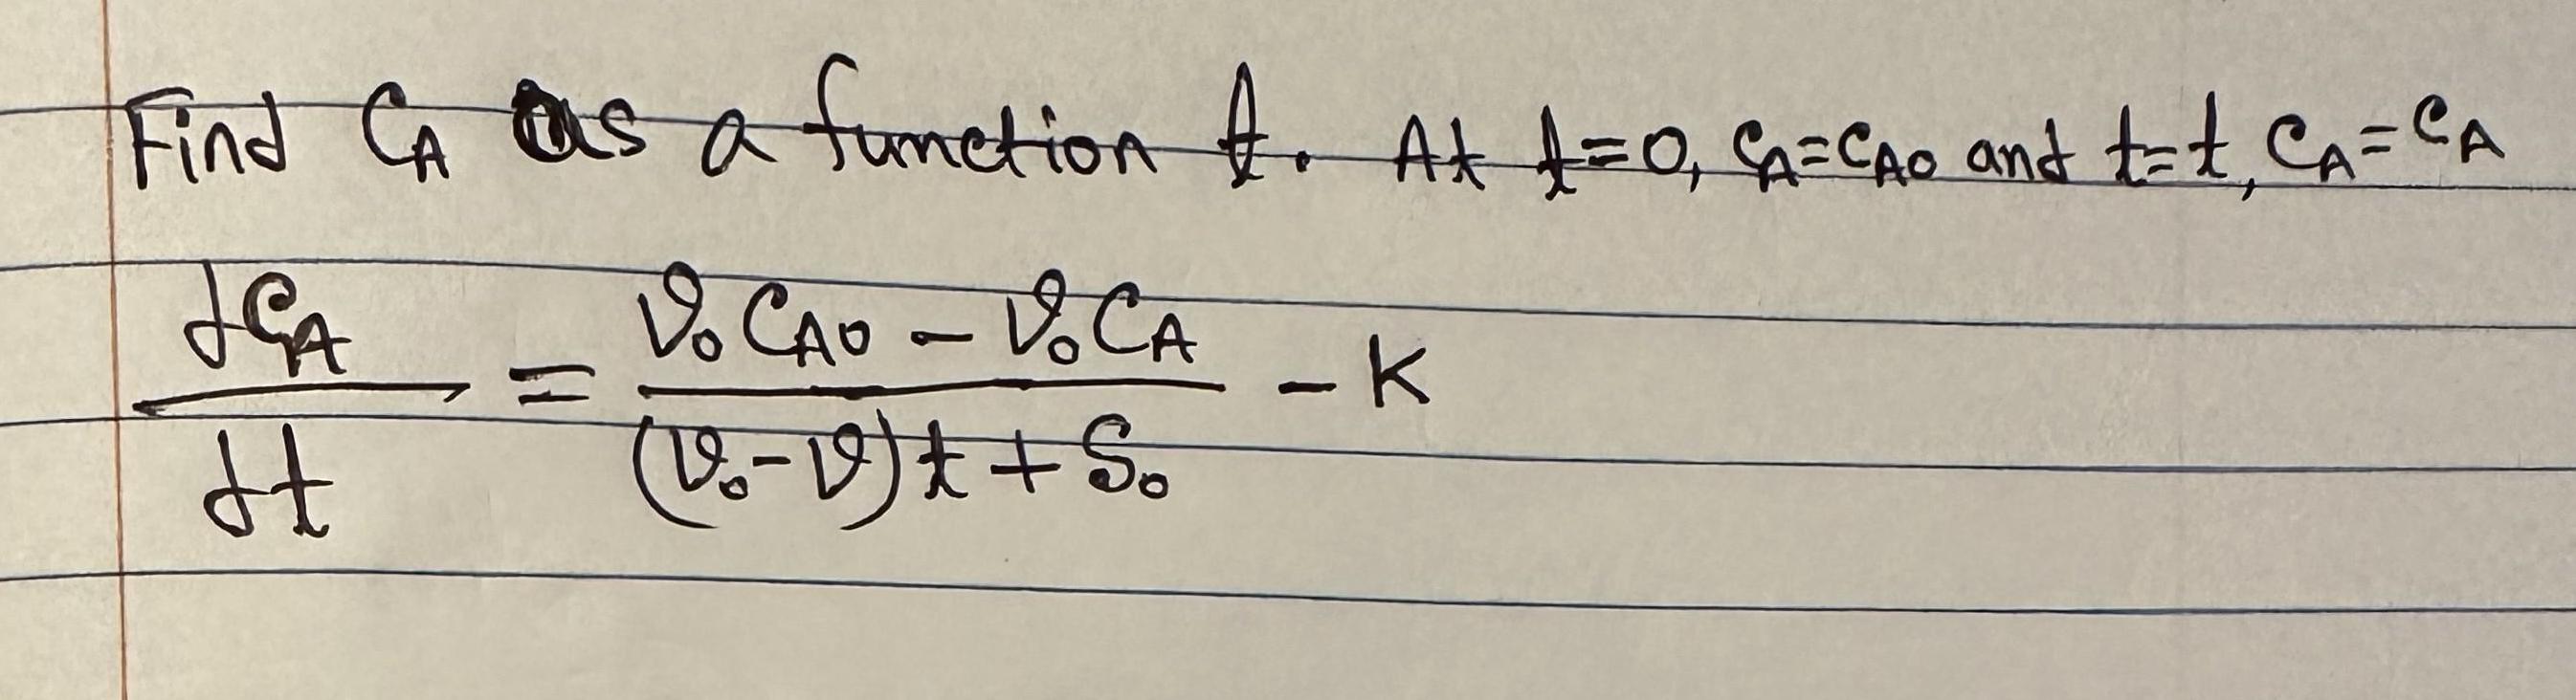 Find C_A as a function t. At t=0, C_A=C_A0 and t=t, C_A=C_A
dC_A/dt = (ϑ₀C_A0 - ϑ₀C_A)/((ϑ₀-ϑ)t + S₀) - K